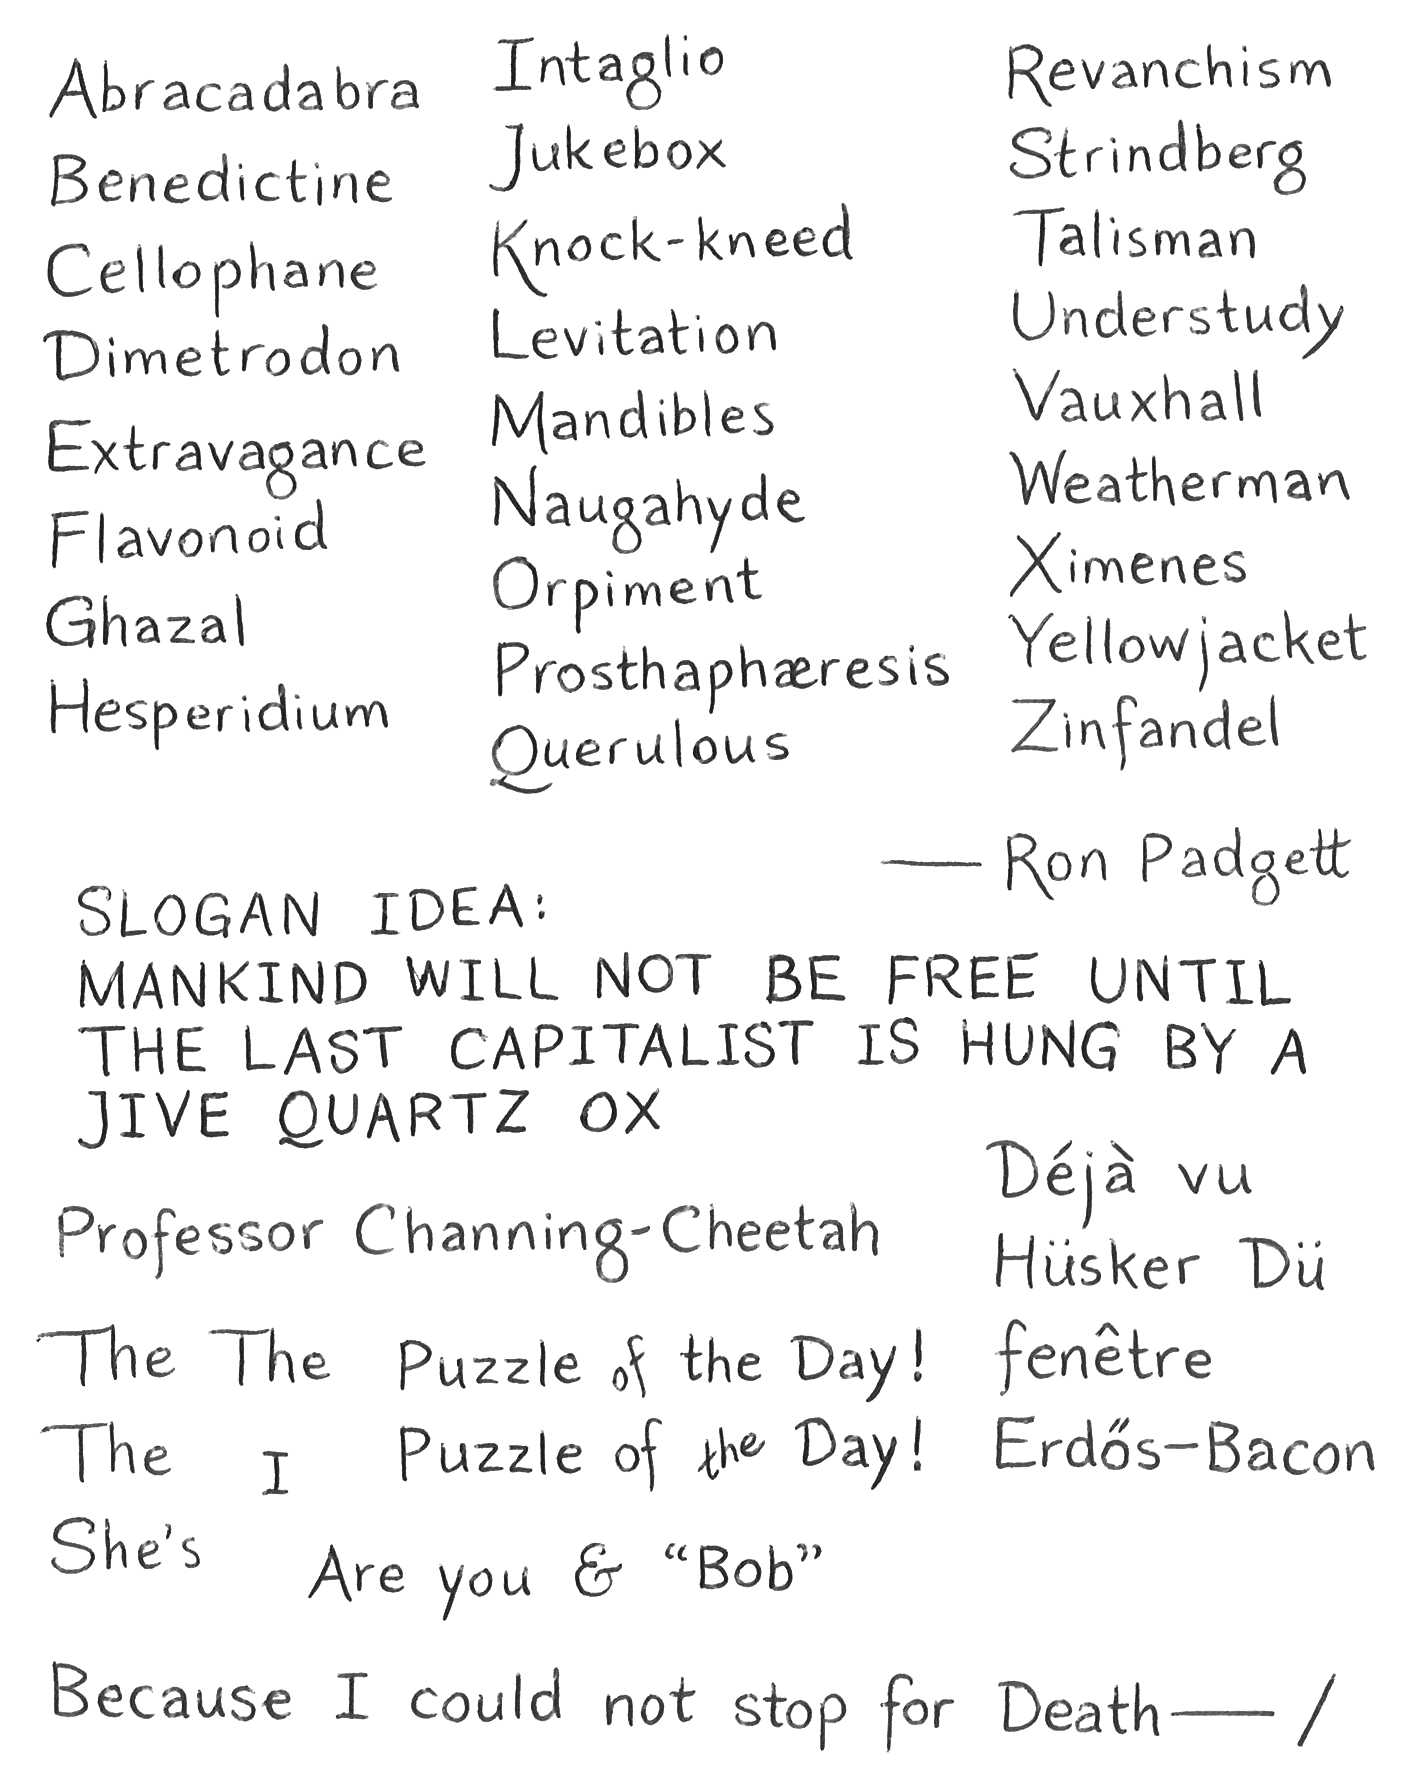 Abracadabra
Benedictine
Cellophane
Dimetrodon
Extravagance
Flavonoid
Ghazal
Hesperidium
Intaglio
Jukebox
Knock-kneed
Levitation
Mandibles
Naugahyde
Orpiment
Prosthaphæresis
Querulous
Revanchism
Strindberg
Talisman
Understudy
Vauxhall
Weatherman
Ximenes
Yellowjacket
Zinfandel
— Ron Padgett
SLOGAN IDEA:
MANKIND WILL NOT BE FREE UNTIL
THE LAST CAPITALIST IS HUNG BY A
JIVE QUARTZ OX
Professor Channing-Cheetah
The The Puzzle of the Day!
The I Puzzle of the Day!
She's Are you & “Bob”
Déjà vu
Hüsker Dü
fenêtre
Erdős–Bacon
Because I could not stop for Death— /